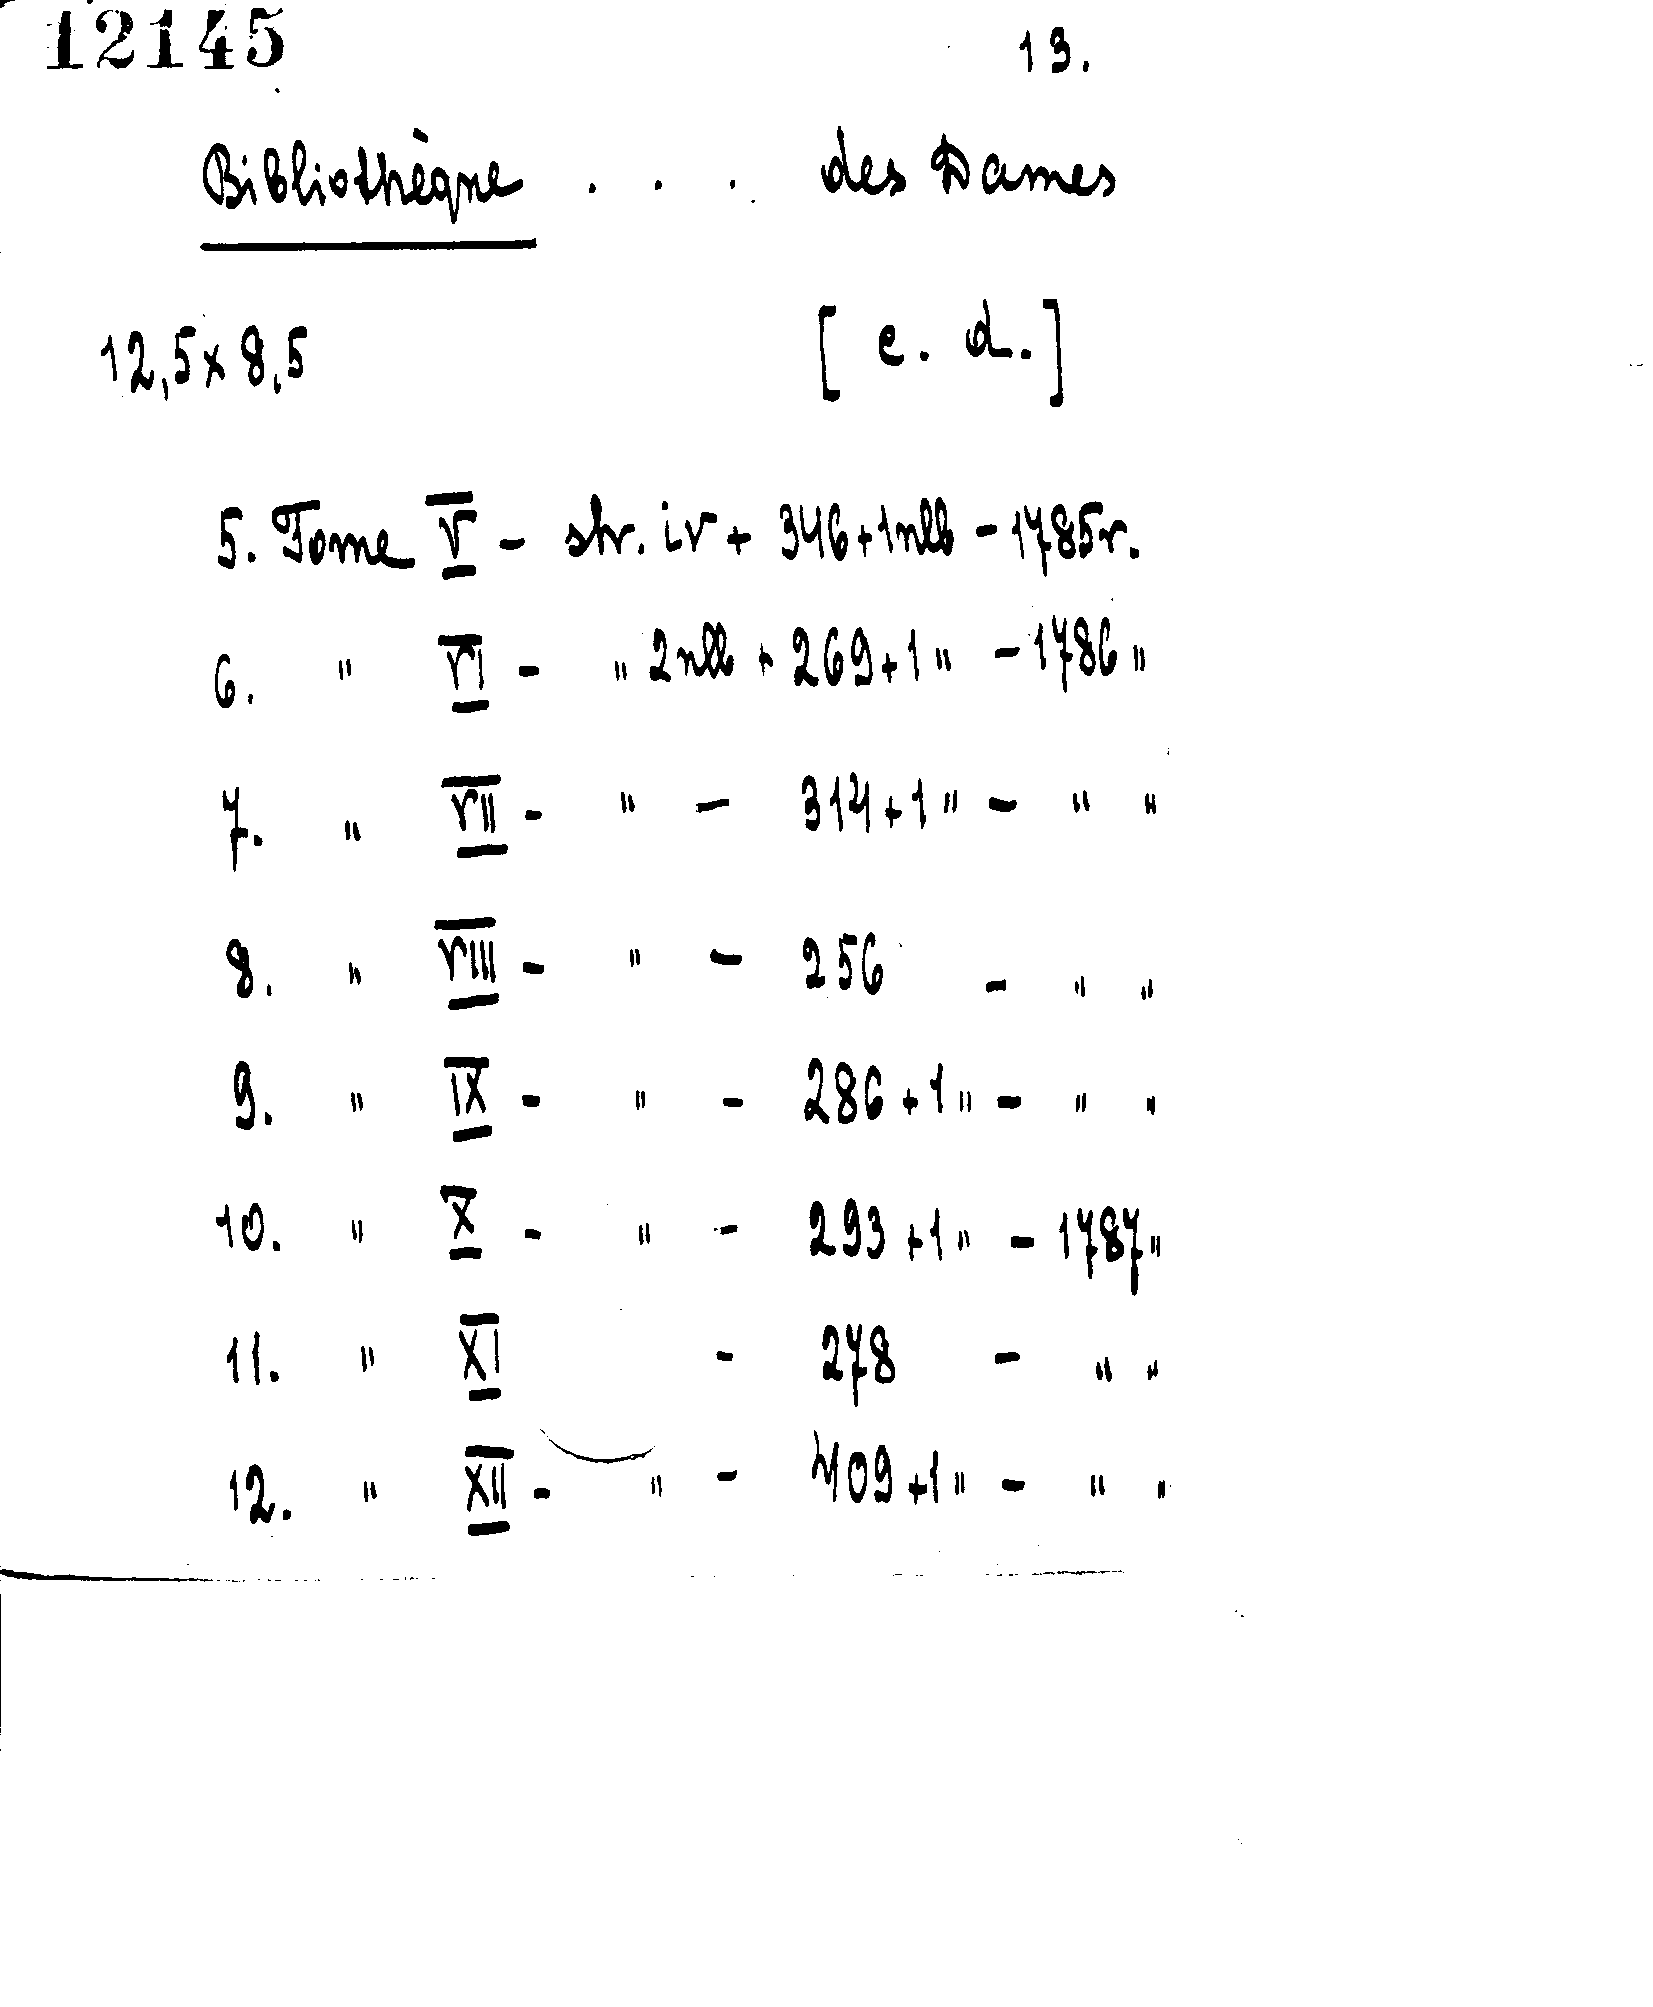 12145 13.
Bibliothèque . . . . des Dames
12,5 x 8,5 [ c. d. ]
5. Tome V - str. iv + 346 + 1 nlb - 1785 r.
6. " VI - " 2 nlb + 269 + 1 " - 1786 "
7. " VII - " - 314 + 1 " - " "
8. " VIII - " - 256 - " "
9. " IX - " - 286 + 1 " - " "
10. " X - " - 293 + 1 " - 1787 "
11. " XI - 278 - " "
12. " XII - " - 409 + 1 " - " "